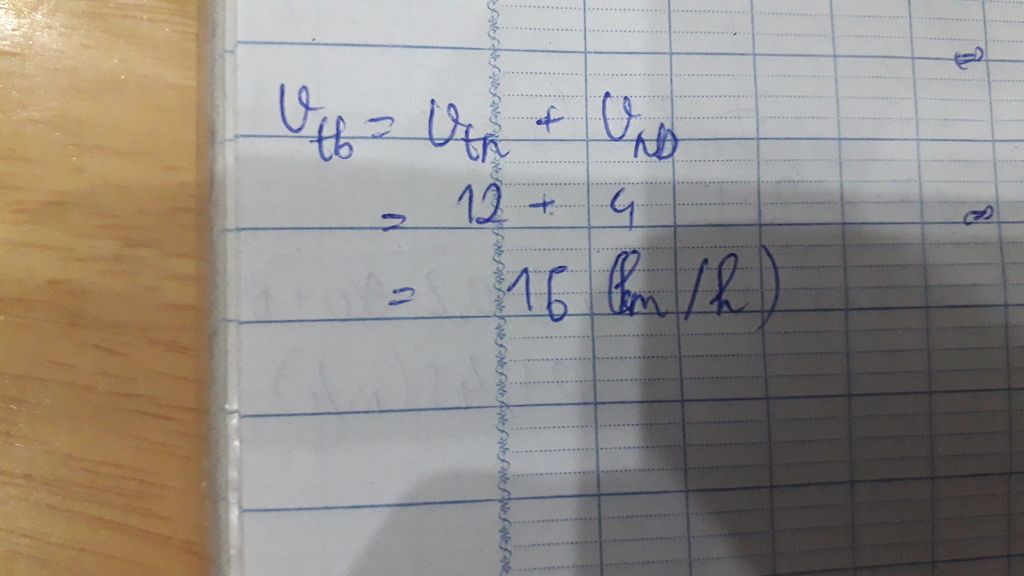 V_tb = V_tn + V_nb
= 12 + 4
= 16 (km/h)